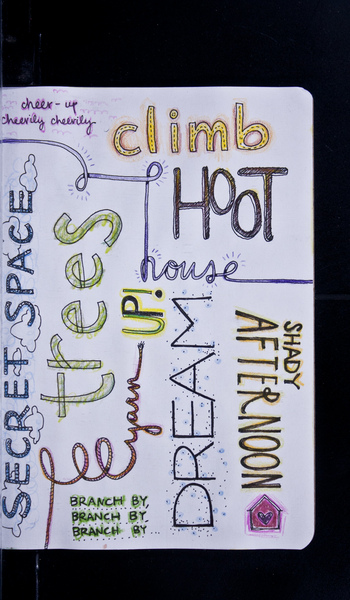 cheer-up
cheerily cheerily
climb
HOOT
house
trees
UP!
SECRET SPACE
yarn
DREAM
SHADY
AFTERNOON
BRANCH BY,
BRANCH BY
BRANCH BY...